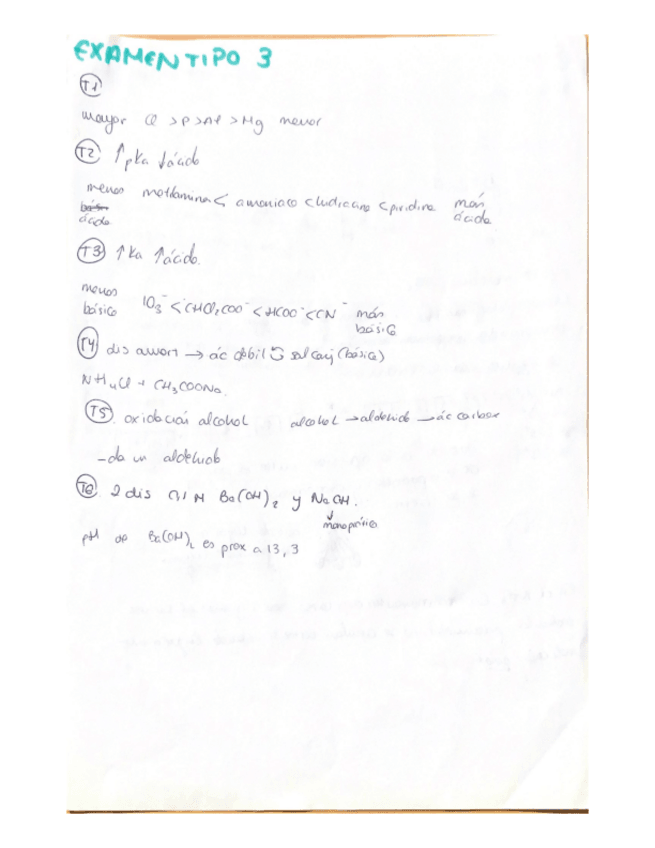 EXAMEN TIPO 3
T1
mayor Cl > P > Al > Mg menor
T2 ↑pka ↓ácido
menos metilamina < amoniaco < hidracina < piridina más
ácida ácida
T3 ↑Ka ↑ácido.
menos IO3⁻ < CHCl2COO⁻ < HCOO⁻ < CN⁻ más
básica básica
T4 dis amort → ác débil sal conj (básica)
NH4Cl + CH3COONa.
T5. oxidación alcohol alcohol → aldehído → ác carbox
- da un aldehído
T6. 2 dis 0,1 M Ba(OH)2 y NaOH.
monoprótico
pH de Ba(OH)2 es prox a 13,3